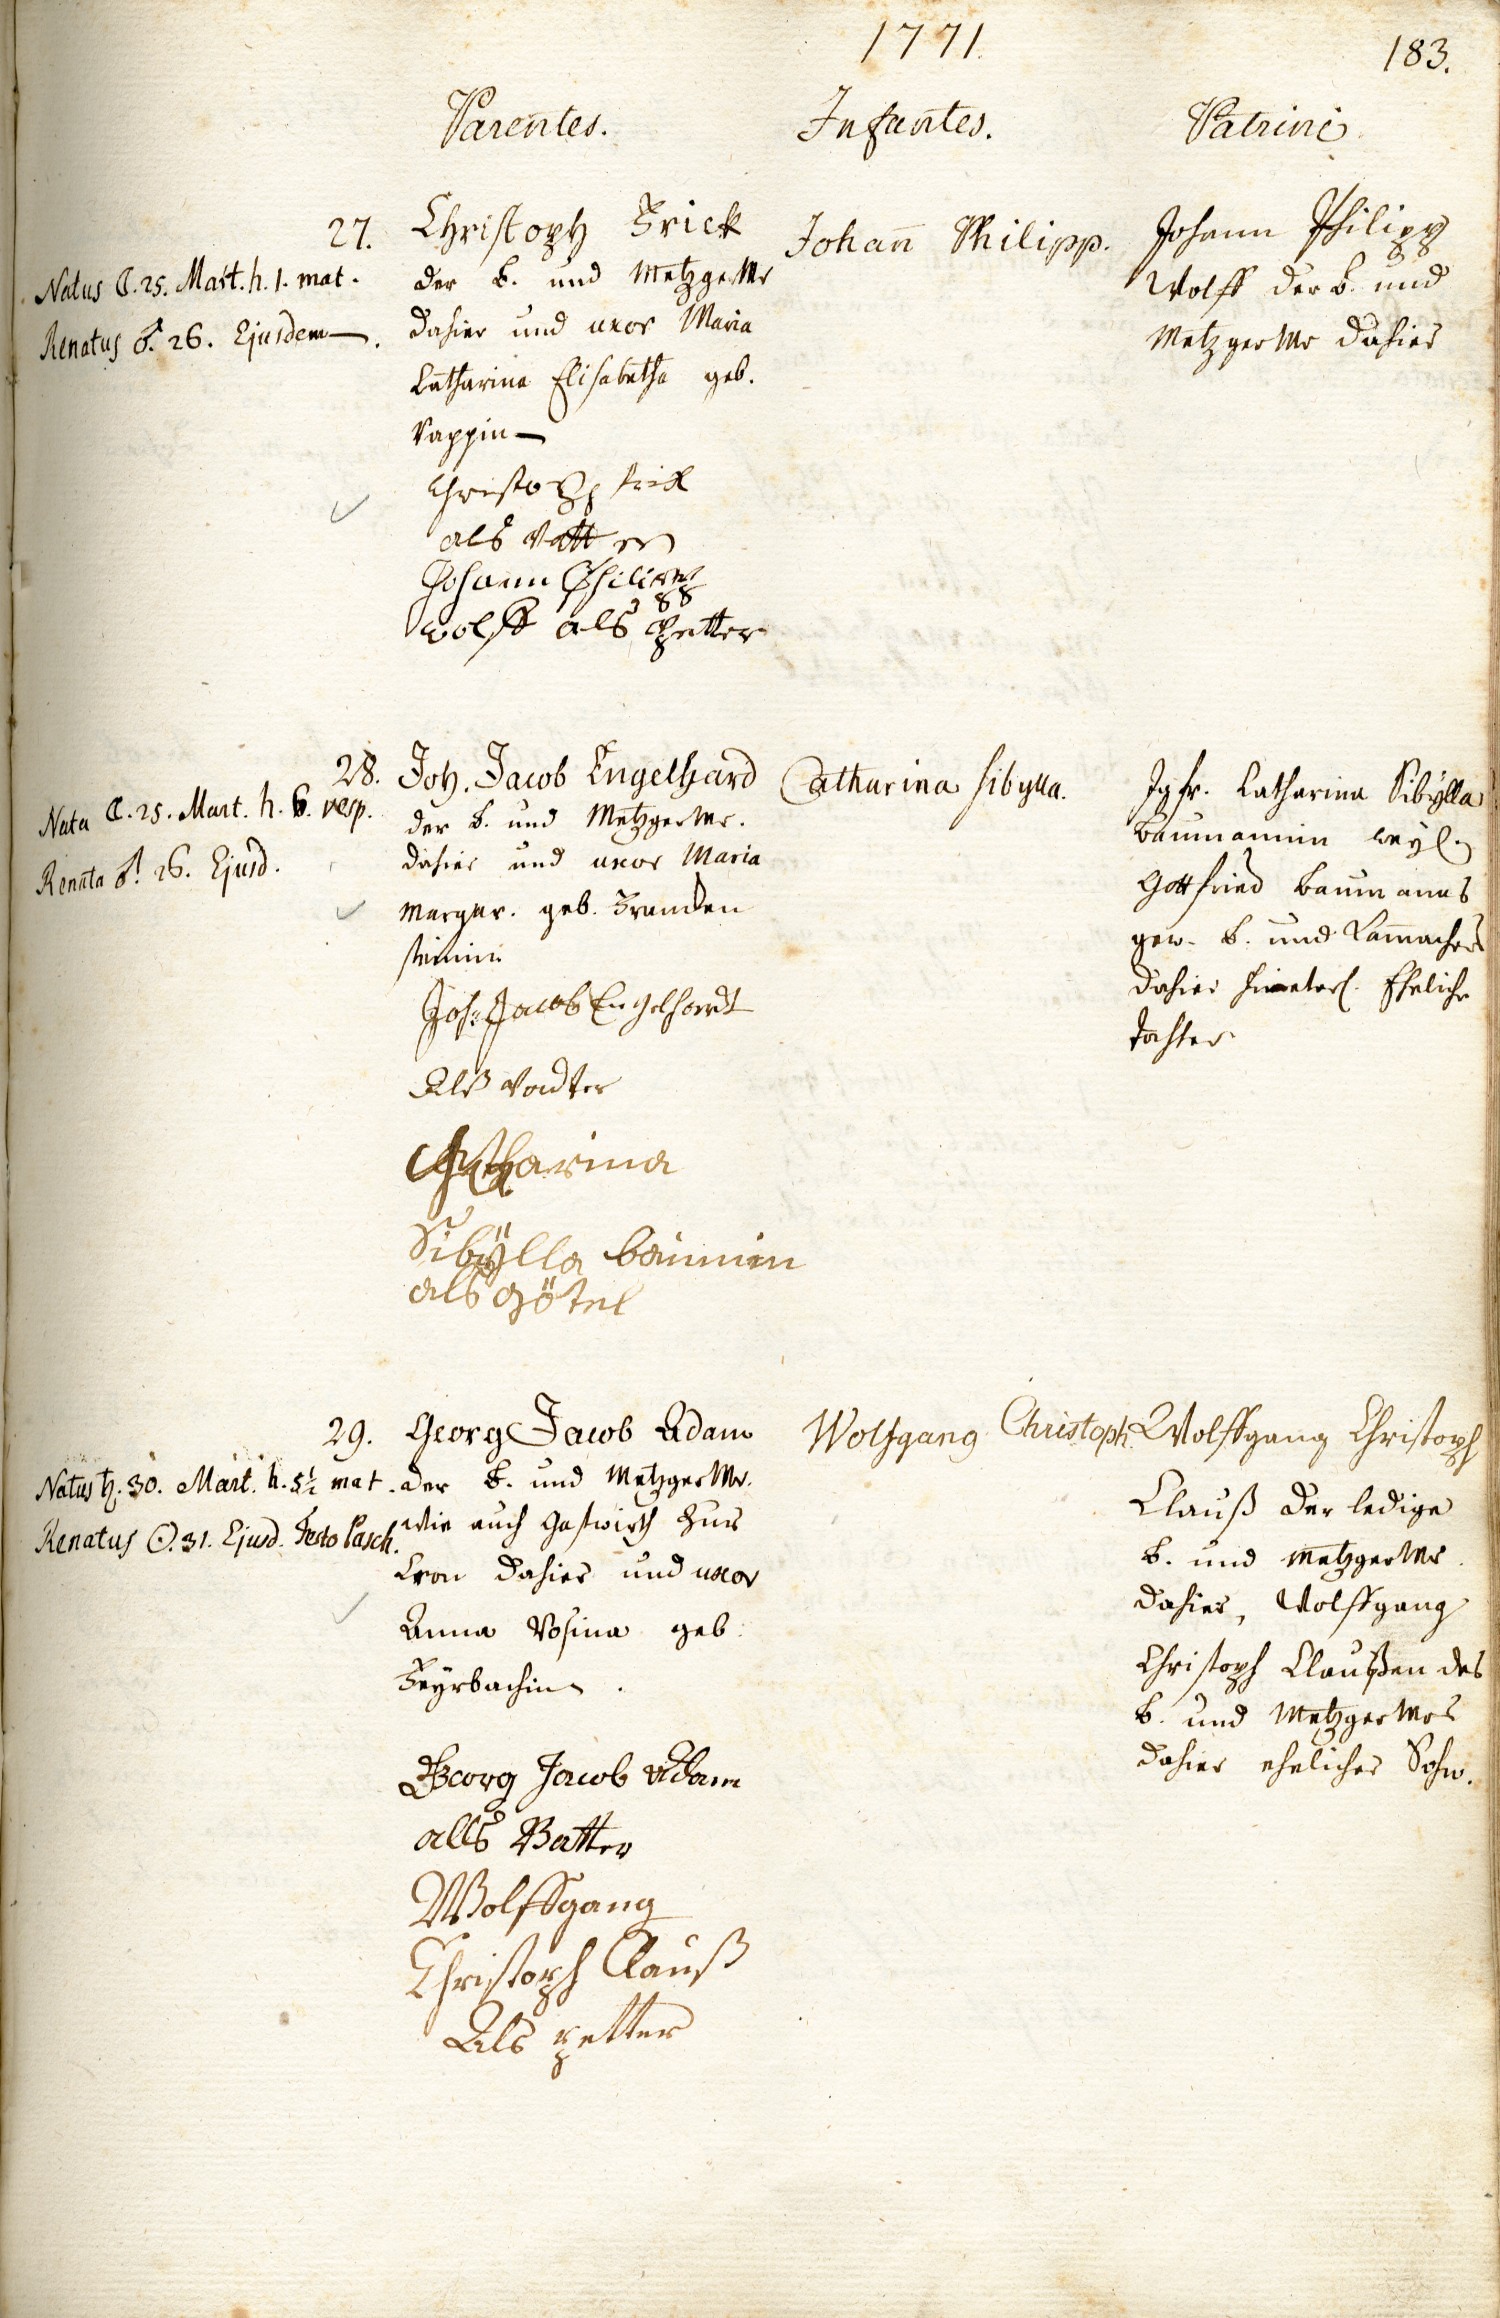 1771.
183.
Parentes.
Infantes.
Patrini
27.
Natus ☾. 25. Mart. h. 1. mat.
Renatus ♂. 26. Ejusdem.
Christoph Frick
der b. und Metzger Mr
dahier und uxor Maria
Catharina Elisabetha geb.
Rappin
Christoph frick
als Vatter
Johann Philipp
Wolff als Petter
Johan̄ Philipp.
Johann Philipp
Wolff der b. und
Metzger Mr dahier
28.
Nata ☾. 25. Mart. h. 6. vesp.
Renata ♂. 26. Ejusd.
Joh. Jacob Engelhard
der b. und Metzger Mr.
dahier und uxor Maria
Margar. geb.
Joh: Jacob Engelhardt
Als Vadter
Catharina
Sibÿlla
als götel
Catharina Sibylla.
Jgfr. Catharina Sibÿlla
Baumannin weyl.
Gottfried Baumanns
gew. b. und Kam̄achers
dahier hinterl. Eheliche
Tochter
29.
Natus ♄. 30. Mart. h. 5½ mat.
Renatus ☉. 31. Ejusd. Festo Pasch.
Georg Jacob Adam
der b. und Metzger Mr.
wie auch Gastwirth zur
Cron dahier und uxor
Anna Rosina geb.
Feyrbachin.
Georg Jacob Adam
alls Vatter
Wolffgang
Christoph Clauß
Als petter
Wolfgang Christoph.
Wolffgang Christoph
Clauß der ledige
b. und Metzger Mr.
dahier, Wolffgang
Christoph Claußen des
b. und Metzger Mrs
dahier ehelicher Sohn.